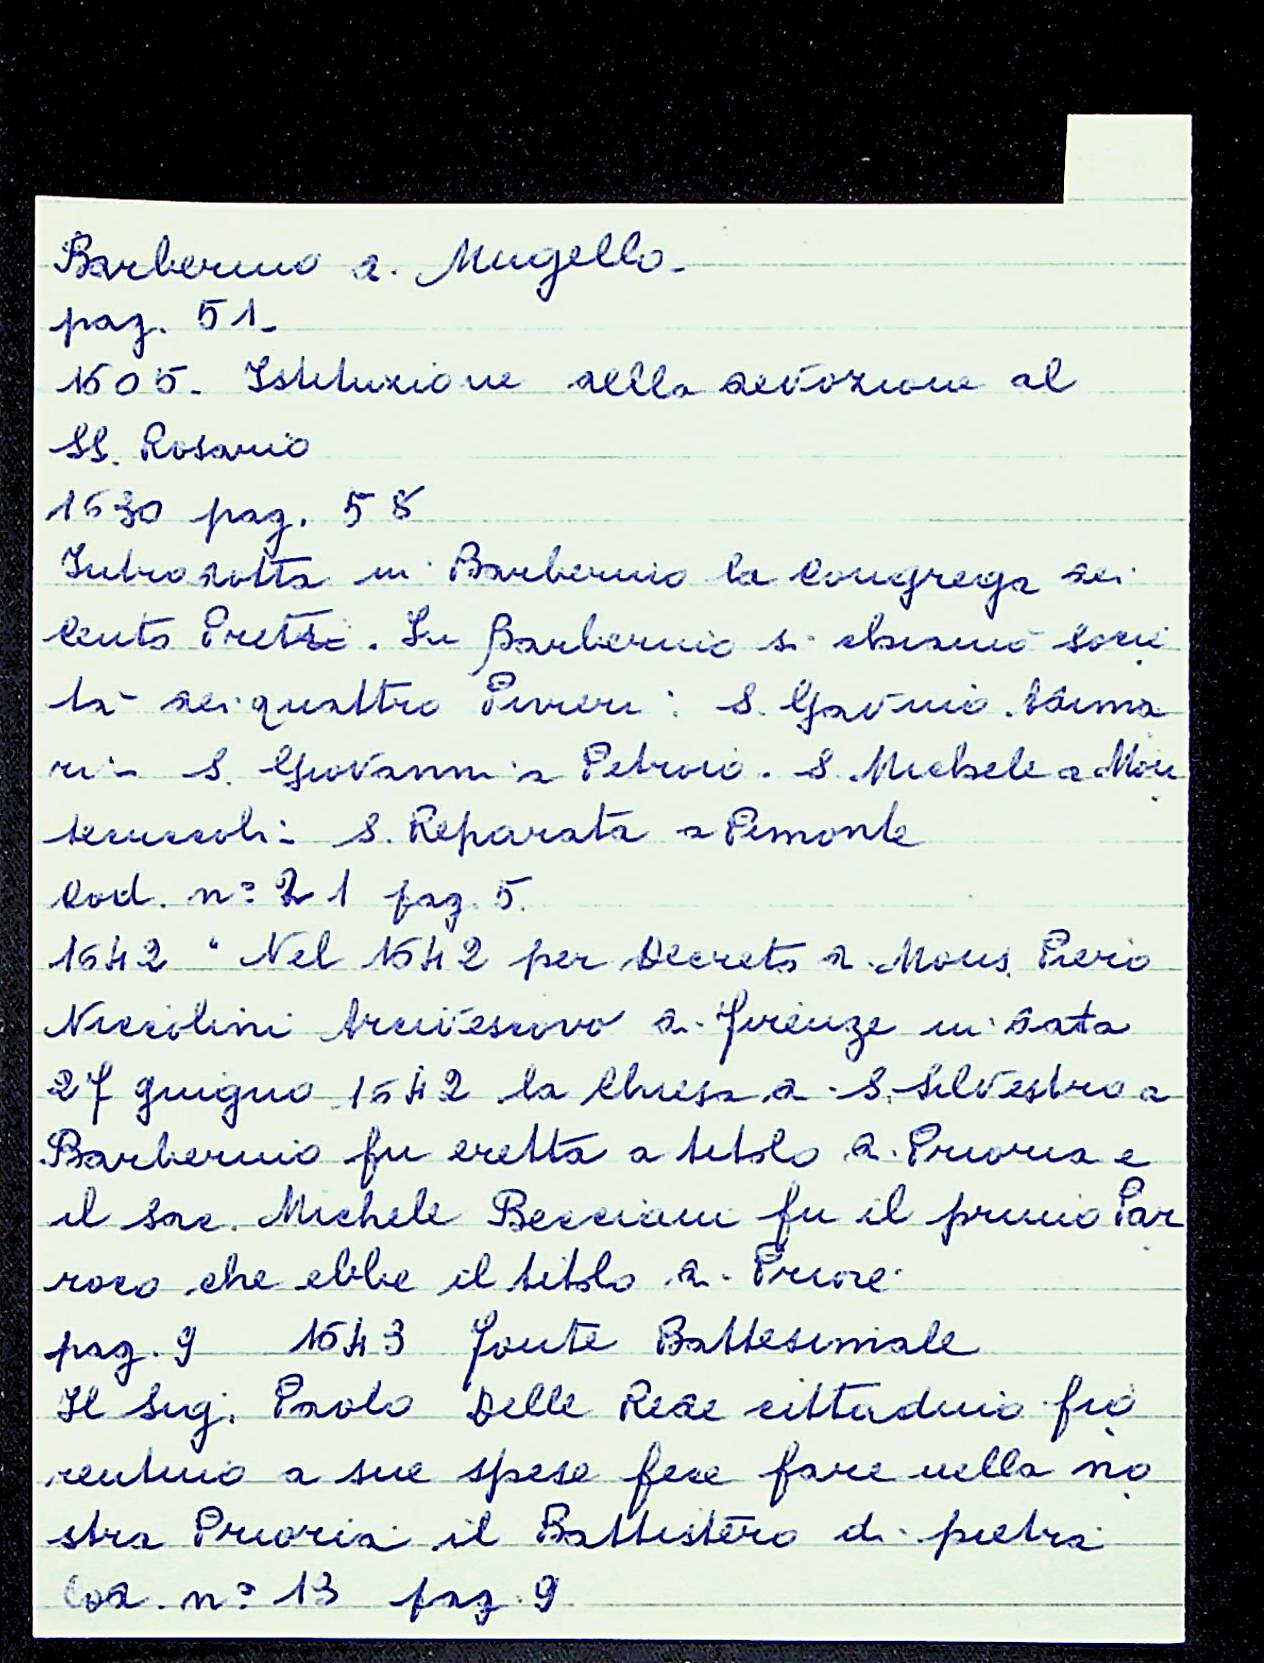 Barberino di Mugello.
pag. 51.
1605. Istituzione della devozione al
SS. Rosario
1630 pag. 58
Introdotta in Barberino la Congrega dei
Cento Preti. In Barberino si chiamò socie
tà dei quattro Pivieri: S. Gavino Adima
ri - S. Giovanni a Petroio. S. Michele a Mon
tecuccoli - S. Reparata a Pimonte
Cod. nº 21 pag. 5.
1642 " Nel 1642 per Decreto di Mons. Piero
Niccolini Arcivescovo di Firenze in data
27 giugno 1642 la Chiesa di S. Silvestro a
Barberino fu eretta a titolo di Prioria e
il Sac. Michele Becciani fu il primo Par
roco che ebbe il titolo di Priore.
pag. 9 1643 Fonte Battesimale
Il Sig. Paolo Delle Rede cittadino fio
rentino a sue spese fece fare nella no
stra Prioria il Battistero di pietra
Cod. nº 13 pag. 9